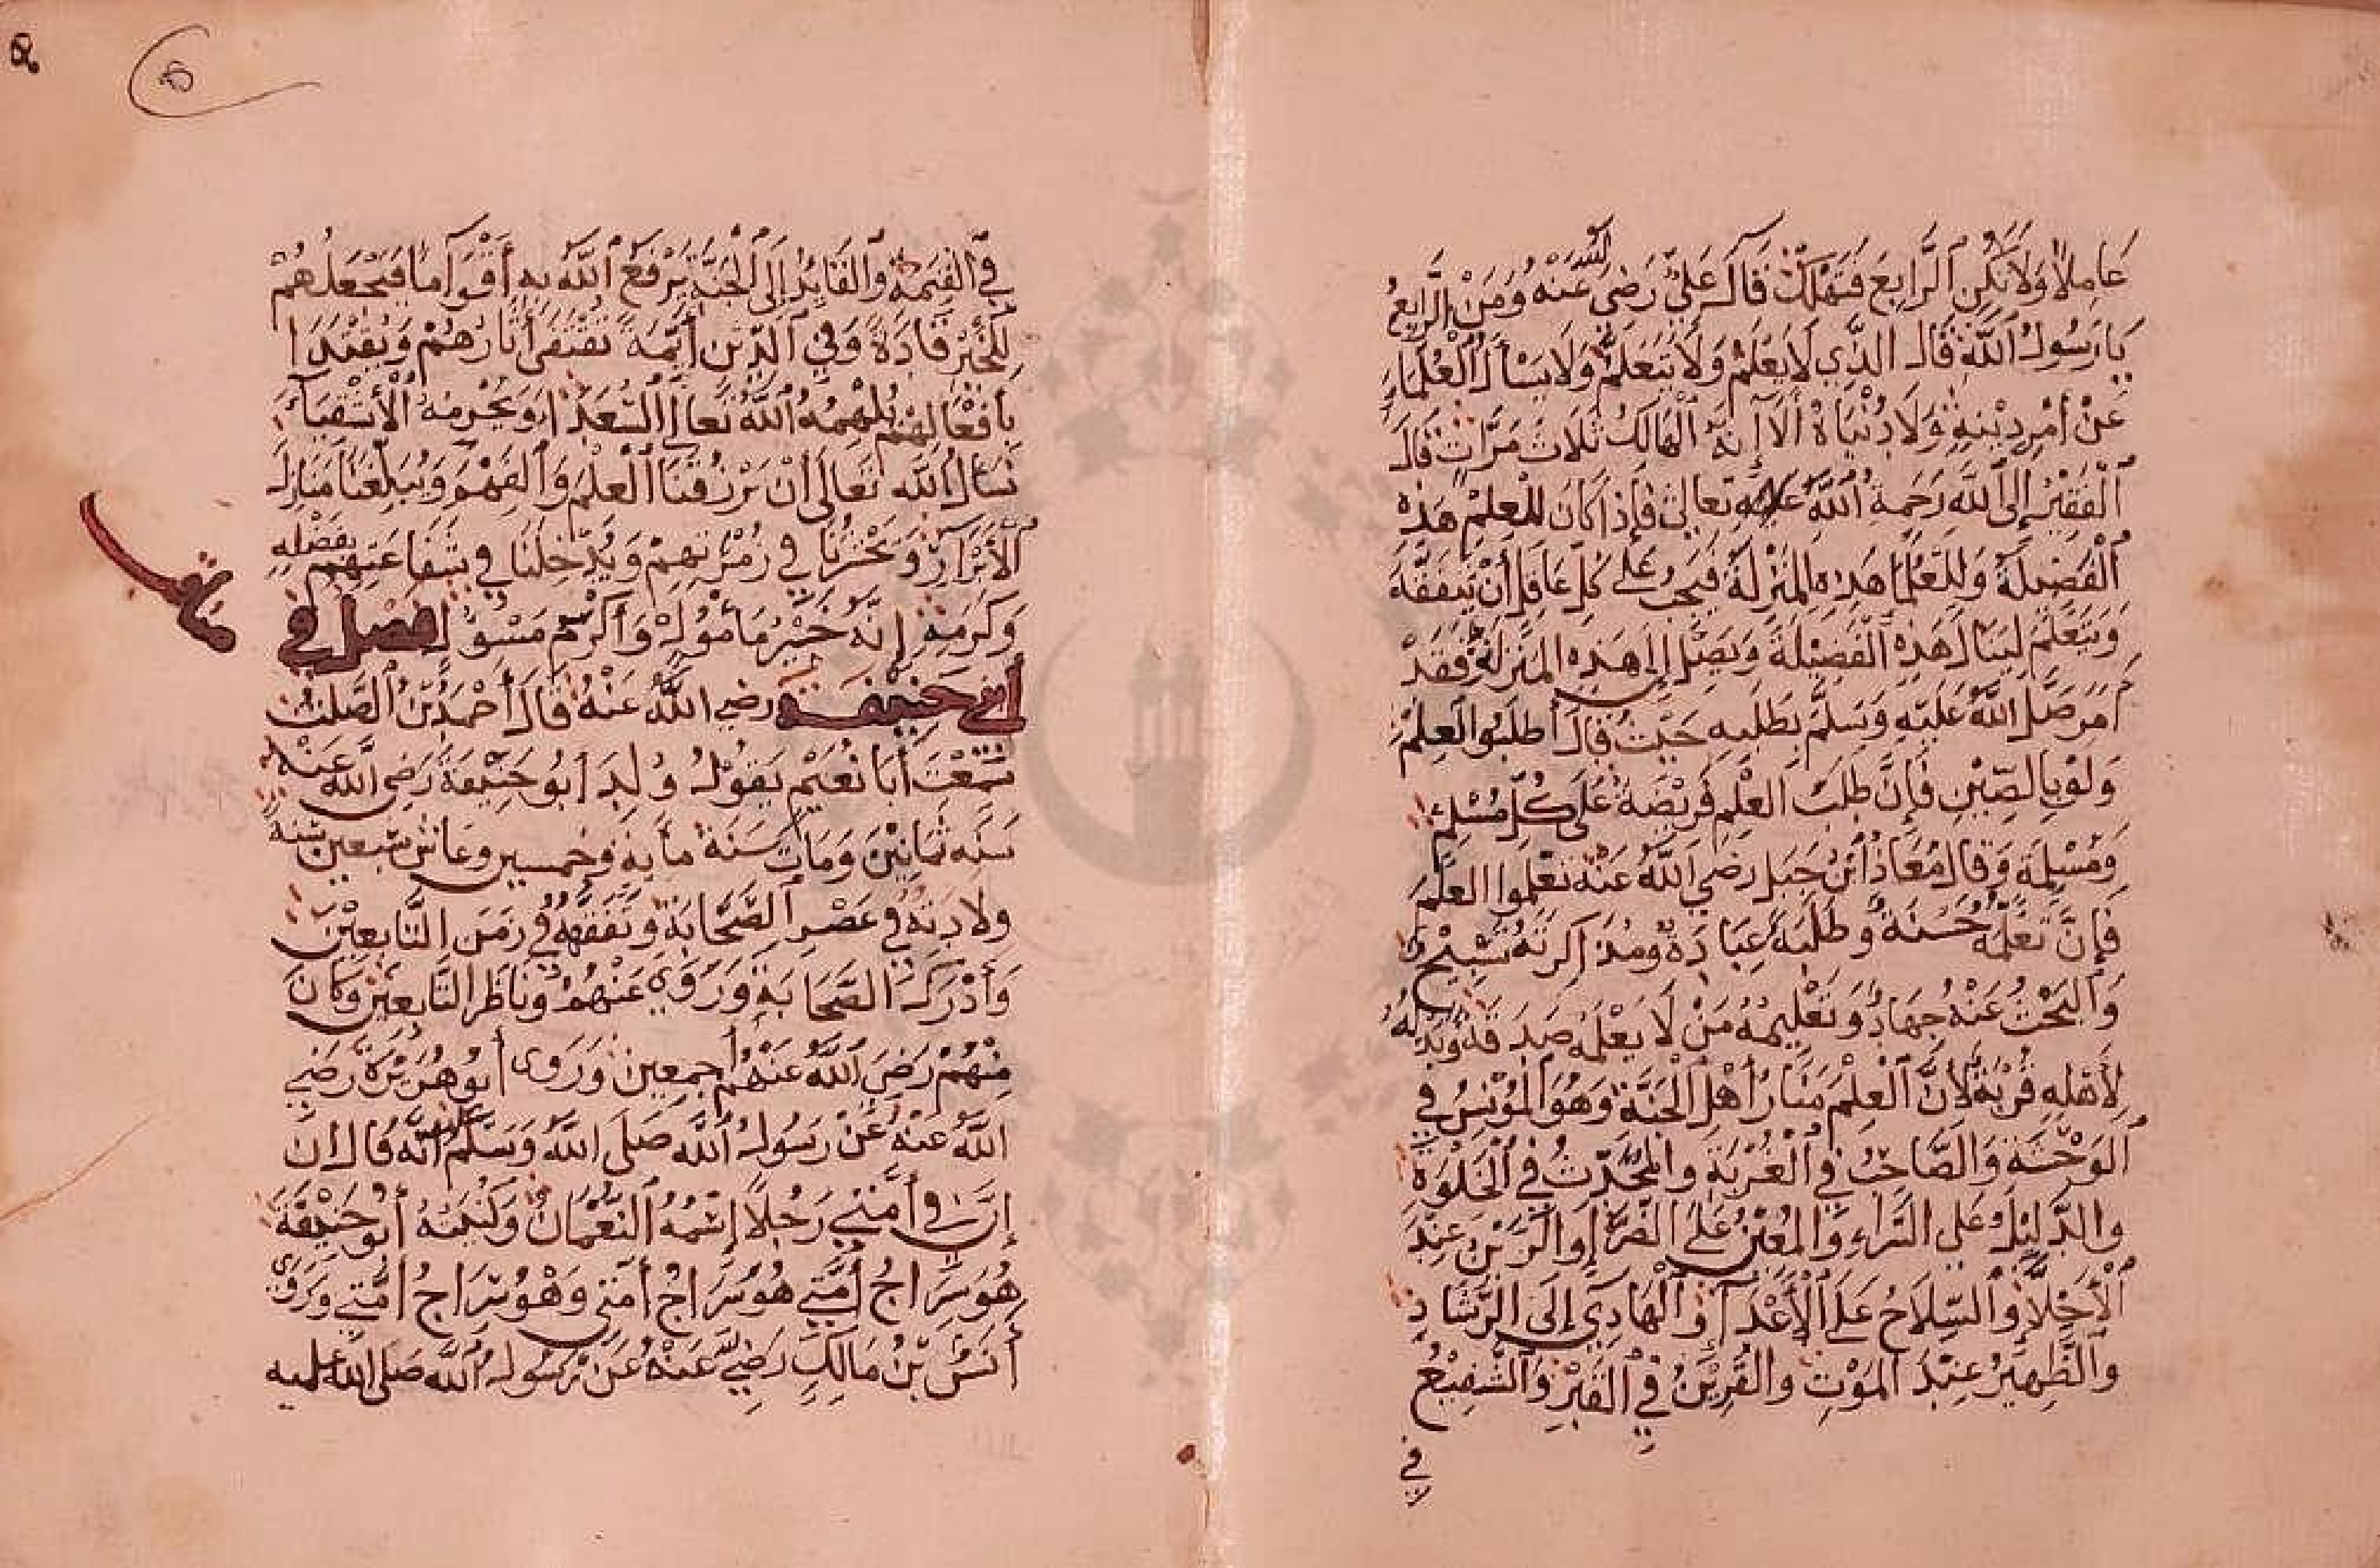 عَامِلًا وَلَا تَكُنِ الرَّابِعَ فَتَهْلَكْ قَالَ عَلِيٌّ رَضِيَ اللّٰه عَنْهُ وَمَنْ الرَّابِعُ
يَا رَسُولَ اللَّهِ قَالَ الَّذِي لَا يَعْلَمُ وَلَا يَتَعَلَّمُ وَلَا يَسْأَلُ الْعُلَمَاءَ
عَنْ أَمْرِ دِيْنِهِ وَلَا دُنْيَاهُ أَلَا إِنَّهُ الْهَالِكُ ثَلَاثَ مَرَّاتٍ قَالَ
الْفَقِيْرُ إِلَى اللَّهِ رَحِمَهُ اللَّهُ تعالى فَإِذَا كَانَ لِلْعِلْمِ هَذِهِ
الْفَضِيلَةُ وَلِلْعُلَمَا هَذِهِ الْمَنْزِلَةُ فَيَجِبُ عَلَى كُلِّ عَاقِلٍ أَنْ يَتَفَقَّهَ
وَيَتَعَلَّمَ لِيَنَالَ هَذِهِ الْفَضِيلَةَ وَيَصِلَ إِلَى هَذِهِ الْمَنْزِلَةِ فَقَدْ
أَمَرَ صَلَّى اللَّهُ عَلَيْهِ وَسَلَّمَ بِطَلَبِهِ حَيْثُ قَالَ أطْلُبُوا الْعِلْمَ
وَلَوْ بِالصِّيْنِ فَإِنَّ طَلَبَ الْعِلْمِ فَرِيْضَةٌ عَلَى كُلِّ مُسْلِمٍ
وَمُسْلِمَةٍ وَقَالَ مُعَاذُ ابْنُ جَبَلٍ رضي اللَّهُ عَنْهُ تَعَلَّمُوا الْعِلْمَ
فَإِنَّ تَعَلُّمَهُ حَسَنَةٌ وَطَلَبَهُ عِبَادَةٌ وَمُذَاكَرَتَهُ تَسْبِيْحٌ
وَالْبَحْثُ عَنْهُ جِهَادٌ وَتَعْلِيمُهُ مَنْ لَا يَعْلَمُهُ صَدَقَةٌ وَبَذْلُهُ
لِأَهْلِهِ قُرْبَةٌ لِأَنَّ الْعِلْمَ مَنَارُ أَهْلِ الْجَنَّةِ وَهُوَ الْمُؤْنِسُ فِي
الْوَحْشَةِ وَالصَّاحِبُ فِي الْغُرْبَةِ وَالْمُحَدِّثُ فِي الْخَلْوَةِ
وَالدَّلِيْلُ عَلَى السَّرَّاءِ وَالْمُعِيْنُ عَلَى الضَّرَّا وَالزَّيْنُ عِنْدَ
الْأَخِلَّا وَالسِّلَاحُ عَلَى الْأَعْدَآ وَالْهَادِي إِلَى الرَّشَادِ
وَالظَّهِيْرُ عِنْدَ الْمَوْتِ وَالْقَرِيْنُ فِي الْقَبْرِ وَالشَّفِيْعُ
في
فِي الْقِيمَةِ وَالْقَايِدُ إِلَى الْجَنَّةِ يَرْفَعُ اللَّهُ بِهِ أَقْوَامًا فَيَجْعَلُهُمْ
لِلْخَيْرِ قَادَةً وَفِي الدِّيْنِ أَيِّمَةً تُقْتَفَى أَثَارُهُمْ وَيُقْتَدَا
بِأَفْعَالِهِمْ يُلْهِمُهُ اللَّهُ تَعَالَى السُّعَدَا وَيُحْرَمُهُ الْأَشْقِيَآءُ
نَسْأَلُ اللَّهَ تَعَالَى أَنْ يَرْزُقَنَا الْعِلْمَ وَالْفَهْمَ وَيُبَلِّغَنَا مَنَازِلَ
الْأَبْرَارِ وَيَحْشُرْنَا فِي زُمْرَتِهِمْ وَيُدْخِلَنَا فِي شَفَاعَتِهِمْ بِفَضْلِهِ
وَكَرَمِهِ إِنَّهُ خَيْرُ مَأْمُولٍ وَأَكْرَمُ مَسْؤُلٍ فصل في
ابي حنيفة رضي اللَّهُ عَنْهُ قَالَ أَحْمَدُ بْنُ الصَّلْتِ
سَمِعْتُ أَبَا نُعَيْمٍ يَقُوْلُ وُلِدَ أَبُو حَنِيْفَةَ رَضِيَ اللَّهُ عَنْهُ
سَنَه ثَمَانِيْنَ وَمَاتَ سَنَةَ مأيةٍ وخمسين وعاش سبعين سنة
ولادَتُهُ فِي عَصْرِ الصَّحَابَةِ وَتَفَقُّهُهُ فِي زَمَنِ التَّابِعِيْنَ
وَأَدْرَكَ الصَّحَابَةَ وَرَوَى عَنْهُمْ وَنَاظَرَ التَّابِعِيْنَ وَكَانَ
مِنْهُمْ رَضِيَ اللَّهُ عَنْهُم أجمعين وَرَوَى أَبُو هُرَيْرَةَ رَضِيَ
اللَّهُ عَنْهُ عَنْ رَسُولِ اللَّهِ صَلَى اللَّهُ عليه وَسَلَّمَ أَنَّه قَالَ ان
إِنَّ فِي أُمَّتِي رَجُلًا إِسْمُهُ النُّعْمَانُ وَكُنْيَتُهُ أَبُو حَنِيْفَةَ
هُوَ سِرَاجُ أُمَّتِي هُوَ سِرَاجُ أُمَّتِي وَهْوُ سِرَاجُ أُمَّتِي وَرَوَى
أَنَسُ بْنُ مَالِكٍ رَضِيَ عَنْهُ عَنْ رَسُولِ اللَّهِ صَلَى اللَّه عليه